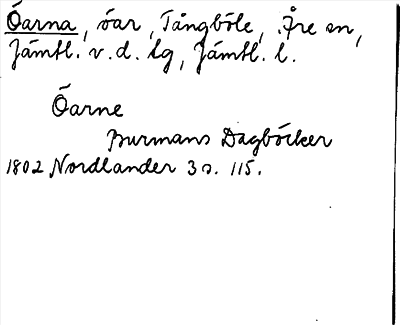 Öarna, öar, Tångböle, Åre sn,
Jämtl. v. d. lg, Jämtl. l.
Öarne
Burmans Dagböcker
1802 Nordlander 3 s. 115.